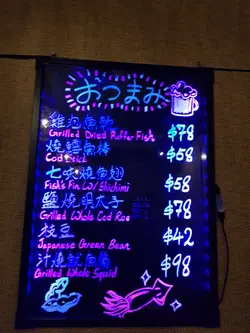 おつまみ
雞泡魚乾 $78
Grilled Dried Puffer Fish
燒鱈魚棒 $58
Cod Stick
七味燒魚翅 $58
Fish's Fin W/ Shichimi
鹽燒明太子 $78
Grilled Whole Cod Roe
枝豆 $42
Japanese Green Bean
汁燒魷魚筒 $98
Grilled Whole Squid